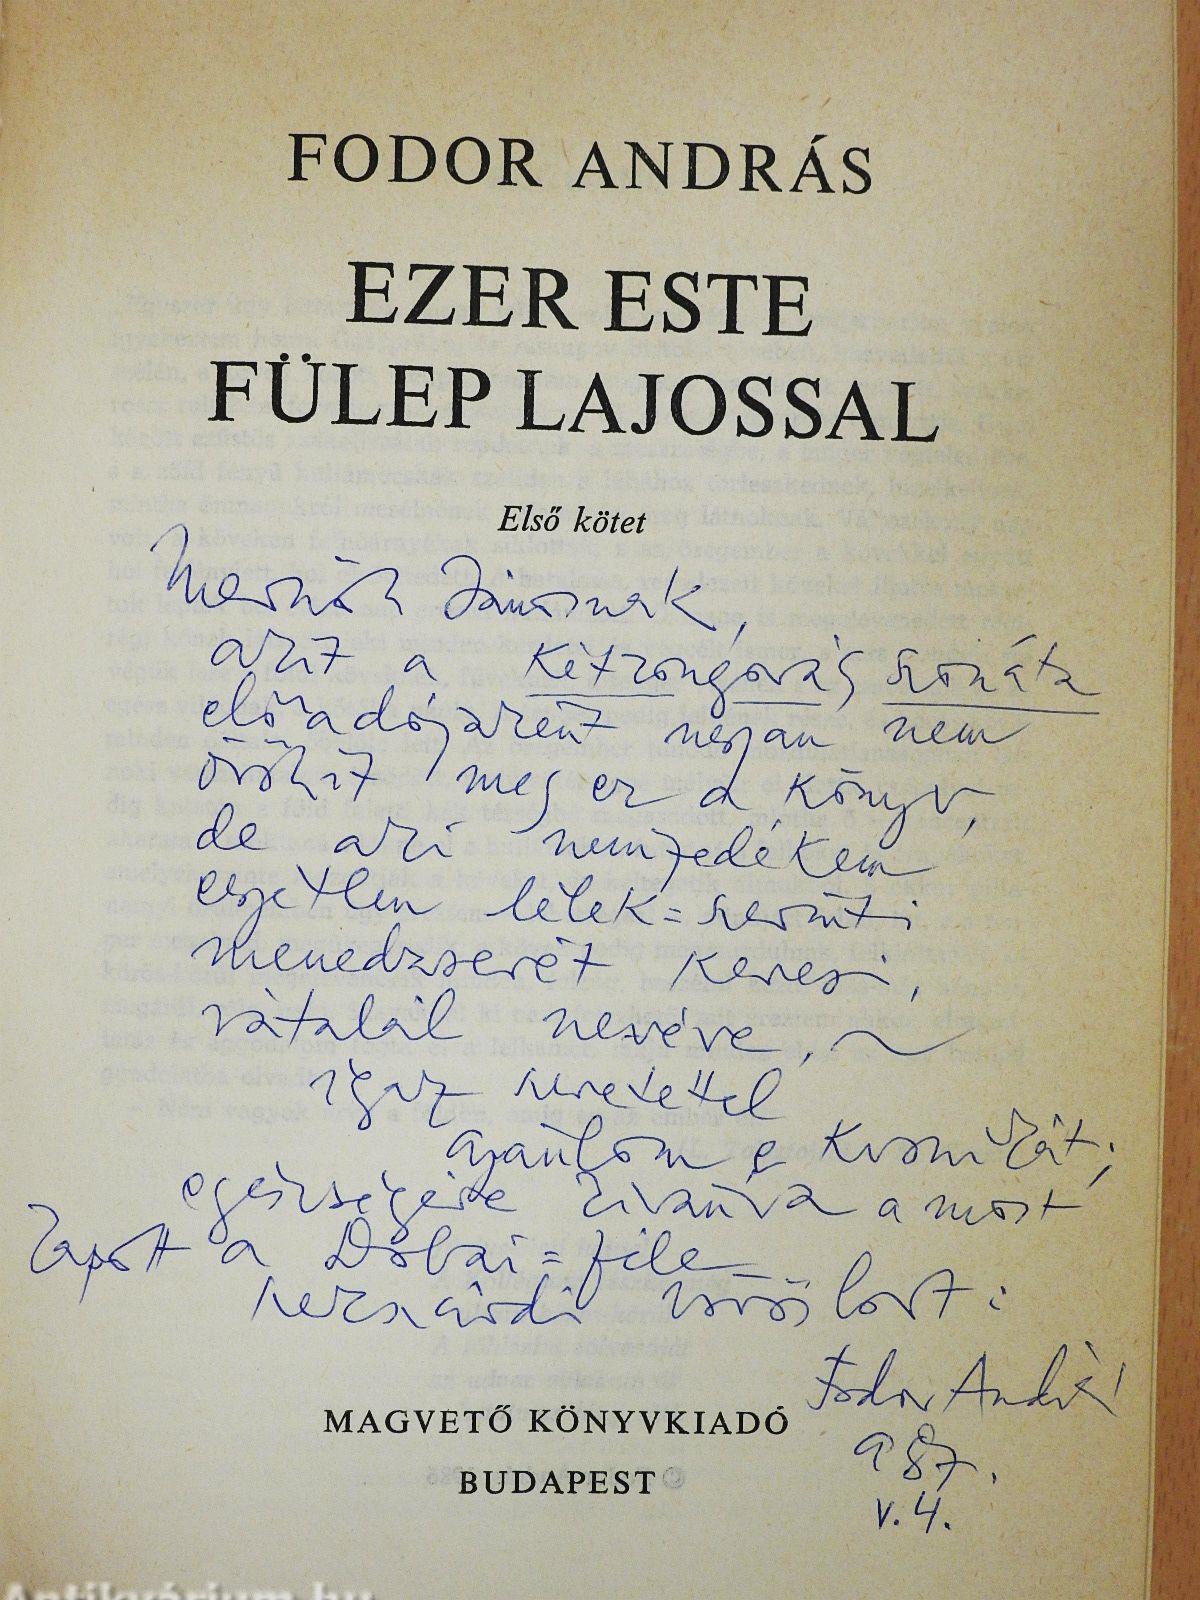 FODOR ANDRÁS
EZER ESTE
FÜLEP LAJOSSAL
Első kötet
Jánosnak,
azt a kétzongorás szonáta
előadójaként nem
meg ez a könyv,
de aki nemzedékem
esetlen lélek=szerinti
menedzserét keresi,
rátalál nevére,
igaz szeretettel
ajánlom e krónikát,
egészségére kívánva a most
kapott a Dobai=féle
szekszárdi vörösbort:
Fodor András
987.
V.4.
MAGVETŐ KÖNYVKIADÓ
BUDAPEST
Antikvárium.hu